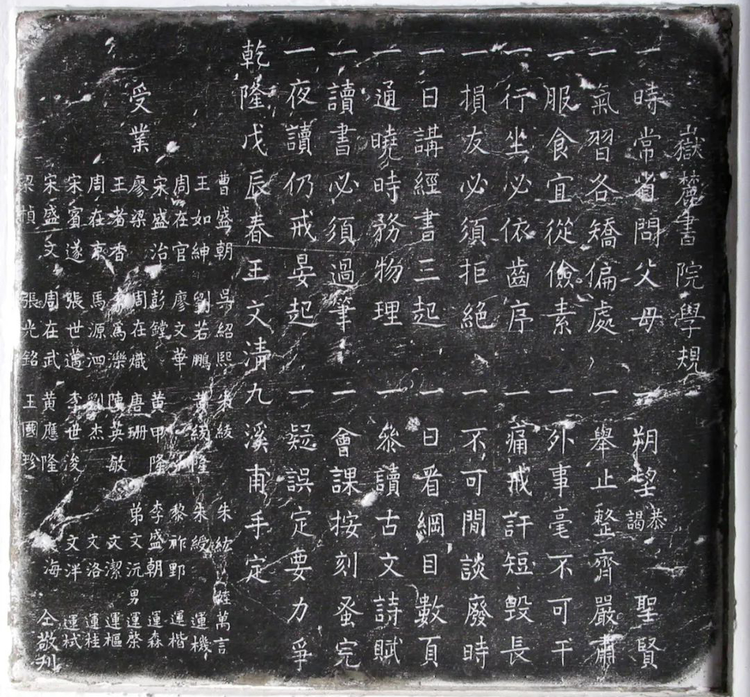 嶽麓書院學規
一時常省問父母 一朔望恭謁聖賢
一氣習各矯偏處 一舉止整齊嚴肅
一服食宜從儉素 一外事毫不可干
一行坐必依齒序 一痛戒訐短毀長
一損友必須拒絕 一不可閒談廢時
一日講經書三起 一日看綱目數頁
一通曉時務物理 一參讀古文詩賦
一讀書必須過筆 一會課按刻蚤完
一夜讀仍戒晏起 一疑誤定要力爭
乾隆戊辰春王文清九溪甫手定
受業
曹盛朝 吳紹熙 朱綾 朱紘 陸萬言
王如紳 劉若鵬 黃綉隆 朱綬 運機
周在官 廖文華 黎祚野 運楷
宋盛治 彭鏜 黃甲隆 李盛朝 運森
廖梁 周在熾 唐珊 弟文沅 男運啓
王者香 萬濼 陳英敏 文潔 運樞
周在東 馬源泗 劉杰 文洛 運桂
宋賓遂 張世邁 李世浚 文洋 運栻
宋盛文 周在武 黃應隆 海 仝敬刋
梁楨 張光銘 王國珍